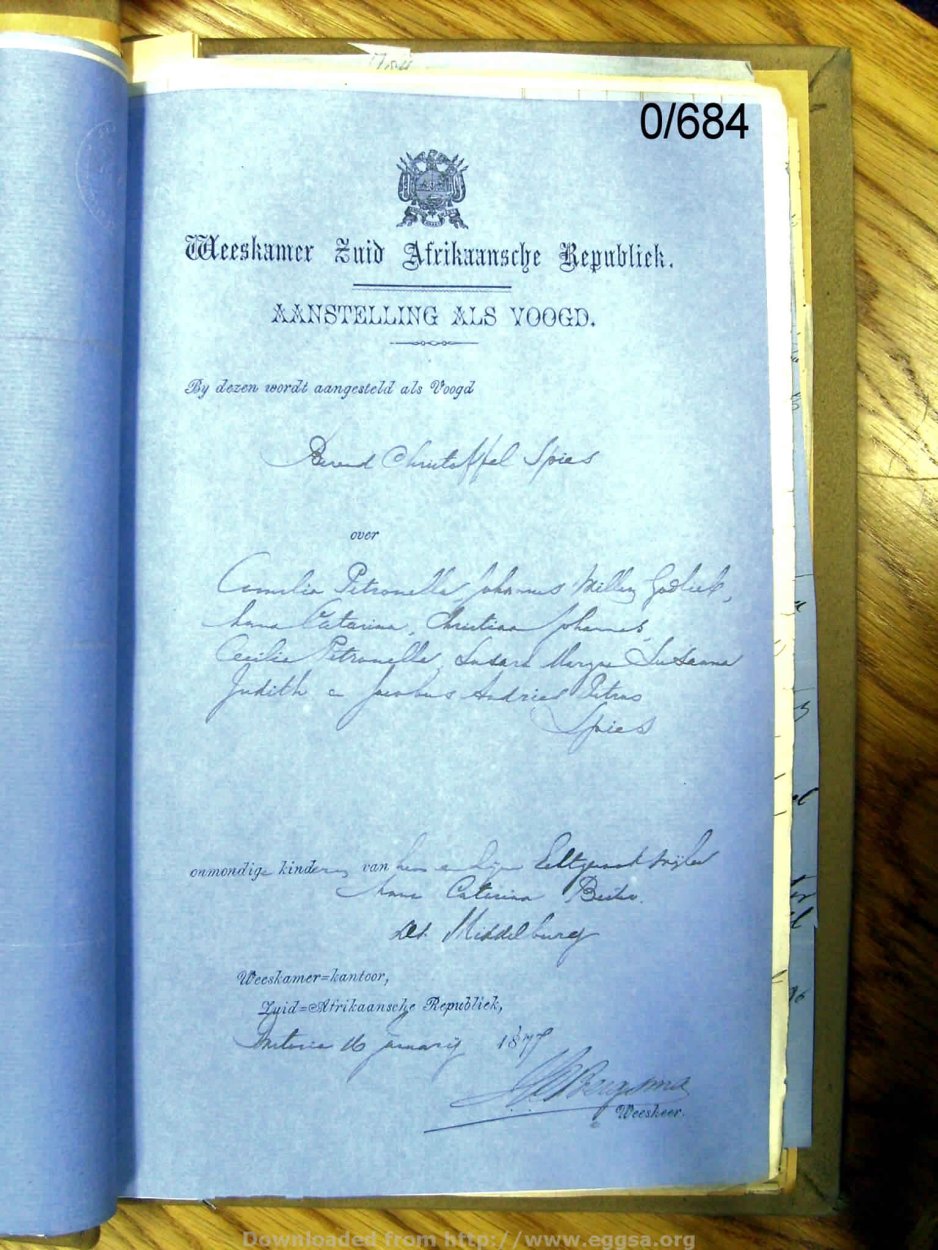 0/684
Weeskamer Zuid Afrikaansche Republiek.
AANSTELLING ALS VOOGD.
By dezen wordt aangesteld als Voogd
Berend Christoffel Spies
over
Cornelia Petronella Johannes Willem Godlieb,
Anna Catarina, Christiaan Johannes,
Cecilia Petronella, Susara Susanna
Judith en Jacobus Andries Petrus
Spies
onmondige kinderen van hem en zijn
Anna Catarina
Dist. Middelburg
Weeskamer=kantoor,
Zuid=Afrikaansche Republiek,
Pretoria 16 January 1877
Bergsma
Weesheer.
Downloaded from http://www.eggsa.org